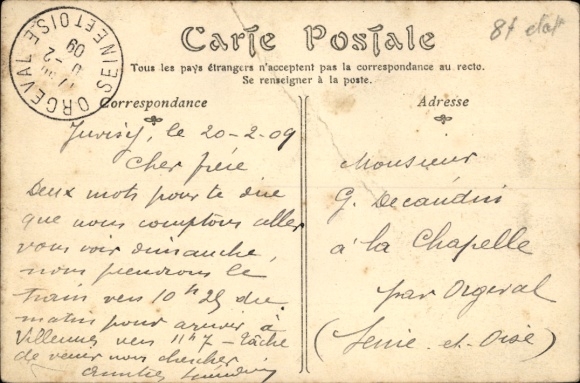 Carte Postale
Tous les pays étrangers n'acceptent pas la correspondance au recto.
Se renseigner à la poste.
Correspondance
Juvisy, le 20-2-09
Cher frère
Deux mots pour te dire
que nous comptons aller
vous voir dimanche,
nous prendrons le
train vers 10h 25 du
matin pour arriver à
Villennes vers 11h7 - tâche
de venir nous chercher
Adresse
Monsieur
G. Decaudin
à la Chapelle
par Orgeval
(Seine-et-Oise)
ORGEVAL
SEINE ET OISE
-2
09